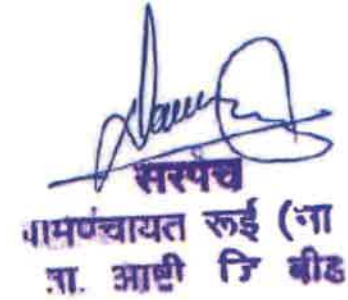 सरपंच
ग्रामपंचायत रूई (ना
ता. आष्टी जि बीड